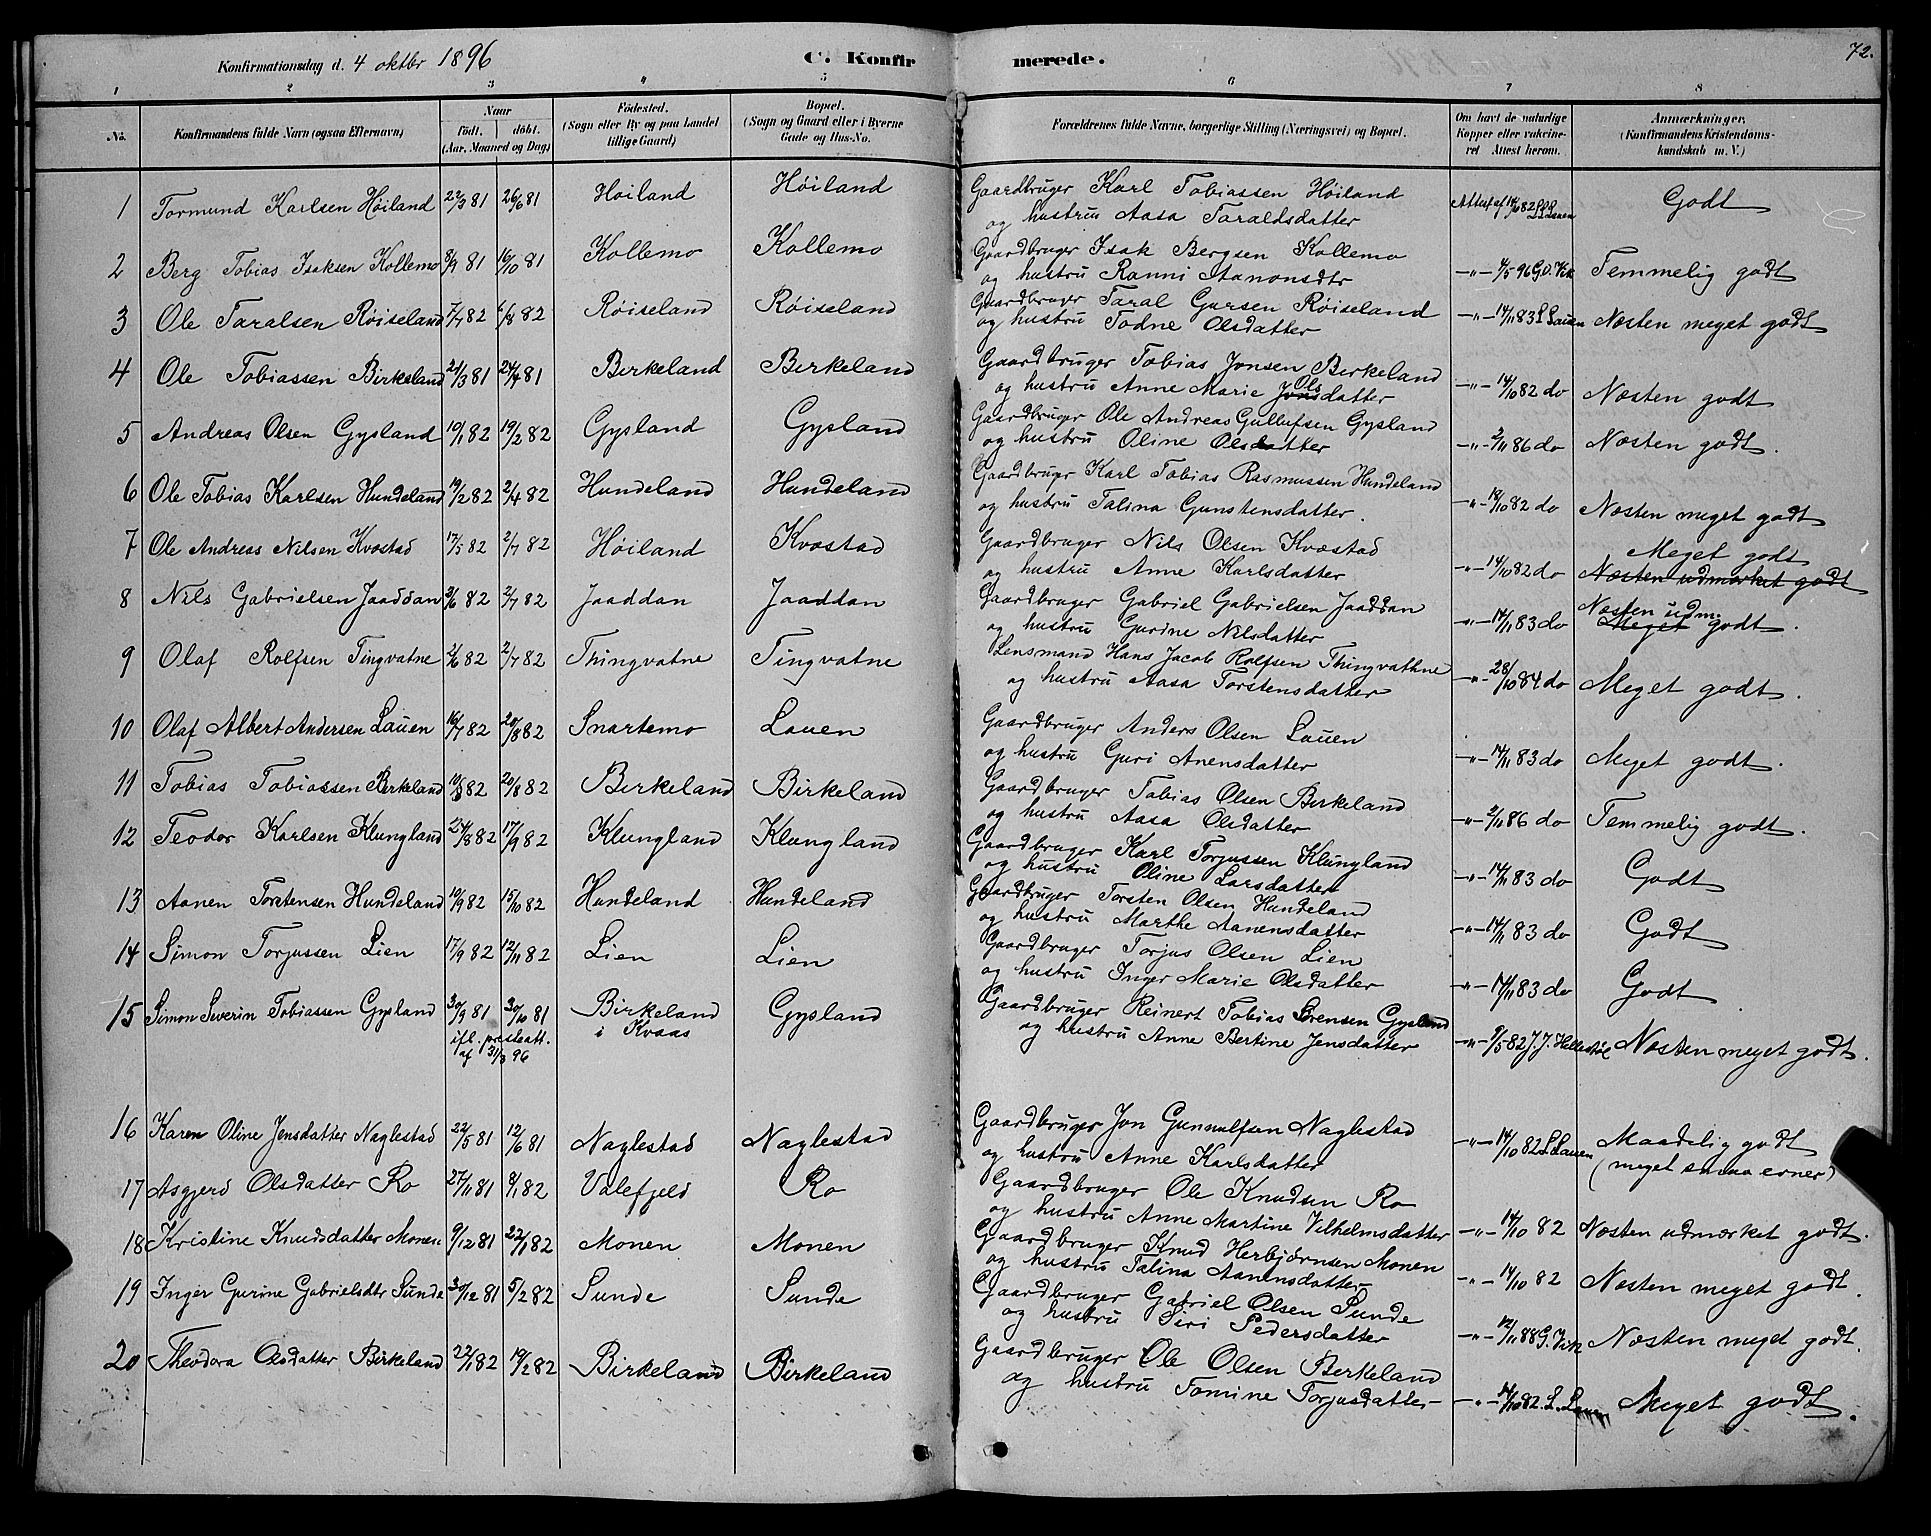 Konfirmationsdag d. 4 oktbr 1896
C. Konfirmerede.
72.
1 2 3 4 5 6 7 8
No.
Konfirmandens fulde Navn (ogsaa Efternavn)
Naar
født. døbt.
(Aar, Maaned og Dag)
Fødested.
(Sogn eller By og paa Landet
tillige Gaard)
Bopæl.
(Sogn og Gaard eller i Byerne
Gade og Hus-No.
Forældrenes fulde Navne, borgerlige Stilling (Næringsvei) og Bopæl.
Om havt de naturlige
Kopper eller vakcine-
ret Attest herom.
Anmærkninger.
(Konfirmandens Kristendoms-
kundskab m. V.)
1 Tormund Karlsen Høiland 22/3 81 26/6 81 Høiland Høiland Gaardbruger Karl Tobiassen Høiland
og hustru Aasa Taraldsdatter Attest af 14/10 82 L Lauen Godt
2 Berg Tobias Isaksen Kollemo 8/9 81 16/10 81 Kollemo Kollemo Gaardbruger Isak Bergsen Kollemo
og hustru Ranni Aanonsdtr —"— 4/5 96 G.O. Vik Temmelig godt
3 Ole Taralsen Røiseland 7/7 82 6/8 82 Røiseland Røiseland Gaardbruger Taral Gursen Røiseland
og hustru Todne Olsdatter —"— 14/11 83 L Lauen Næsten meget godt
4 Ole Tobiassen Birkeland 21/3 81 24/4 81 Birkeland Birkeland Gaardbruger Tobias Jonsen Birkeland
og hustru Anne Marie Jons Olsdatter —"— 14/10 82 do Næsten godt
5 Andreas Olsen Gysland 10/1 82 19/2 82 Gysland Gysland Gaardbruger Ole Andreas Gullufsen Gysland
og hustru Oline Olsdatter —"— 2/11 86 do Næsten godt.
6 Ole Tobias Karlsen Hundeland 19/2 82 2/4 82 Hundeland Hundeland Gaardbrugr Karl Tobias Rasmussen Hundeland
og hustru Talina Gunstensdatter. —"— 18/10 82 do Næsten meget godt
7 Ole Andreas Nilsen Kvæstad 17/5 82 2/7 82 Høiland Kvæstad Gaardbruger Nils Olsen Kvæstad
og hustru Anne Karlsdatter —"— 14/10 82 do Meget godt
Næsten udmærket godt
8 Nils Gabrielsen Jaaddan 3/6 82 2/7 82 Jaaddan Jaaddan Gaardbruger Gabriel Gabrielsen Jaaddan
og hustru Gurine Nilsdatter —"— 14/11 83 do Næsten udm.
Meget godt.
9 Olaf Rolfsen Tingvatne 2/6 82 2/7 82 Thingvatne Tingvatne Lensmand Hans Jacob Rolfsen Thingvathne
og hustru Aasa Torstensdatter —"— 28/10 84 do Meget godt.
10 Olaf Albert Andersen Lauen 16/7 82 20/8 82 Snartemo Lauen Gaardbruger Anders Olsen Lauen
og hustru Guri Anensdatter —"— 14/11 83 do Meget godt.
11 Tobias Tobiassen Birkeland 10/8 82 20/8 82 Birkeland Birkeland Gaardbruger Tobias Olsen Birkeland
og hustru Aasa Olsdatter —"— 2/11 86 do Temmelig godt.
12 Teodor Karlsen Klungland 24/8 82 17/9 82 Klungland Klungland Gaardbruger Karl Torjussen Klungland
og hustru Oline Larsdatter —"— 14/11 83 do Godt
13 Aanen Torstensen Hundeland 10/9 82 15/10 82 Hundeland Hundeland Gaardbruger Torsten Olsen Hundeland
og hustru Marthe Aanensdatter —"— 14/11 83 do Godt
14 Simon Torjussen Lien 17/9 82 12/11 82 Lien Lien Gaardbruger Torjus Olsen Lien
og hustru Inger Marie Olsdatter —"— 14/11 83 do Godt
15 Simon Severin Tobiassen Gysland 30/9 81 30/10 81 Birkeland
i Kvaas Gysland Gaardbruger Reinert Tobias Sørensen Gysland
og hustru Anne Bertine Jensdatter —"— 9/5 82 J. J. Hellestøl Næsten meget godt.
ifl. presteatt.
af 31/3 96
16 Karen Oline Jensdatter Naglestad 22/5 81 12/6 81 Naglestad Naglestad Gaardbruger Jon Gunnulfsen Naglestad
og hustru Anne Karlsdatter —"— 14/10 82 L Lauen Maadelig godt
(meget smaa evner)
17 Asgjerd Olsdatter Ro 27/11 81 8/1 82 Valefjeld Ro Gaardbruger Ole Knudsen Ro
og hustru Anne Martine Vilhelmsdatter —"— 14/10 82 Næsten udmærket godt.
18 Kristine Knudsdatter Monen 9/12 81 22/1 82 Monen Monen Gaardbruger Knud Herbjørnsen Monen
og hustru Talina Aanensdatter —"— 14/10 82 Næsten meget godt.
19 Inger Gurine Gabrielsdtr Sunde 30/12 81 5/2 82 Sunde Sunde Gaardbruger Gabriel Olsen Sunde
og hustru Siri Pedersdatter —"— 12/11 88 G. Vik Næsten meget godt.
20 Theodora Olsdatter Birkeland 22/1 82 19/2 82 Birkeland Birkeland Gaardbruger Ole Olsen Berkeland
og hustru Tomine Torjusdatter —"— 14/10 82. L. Lauen Meget godt.